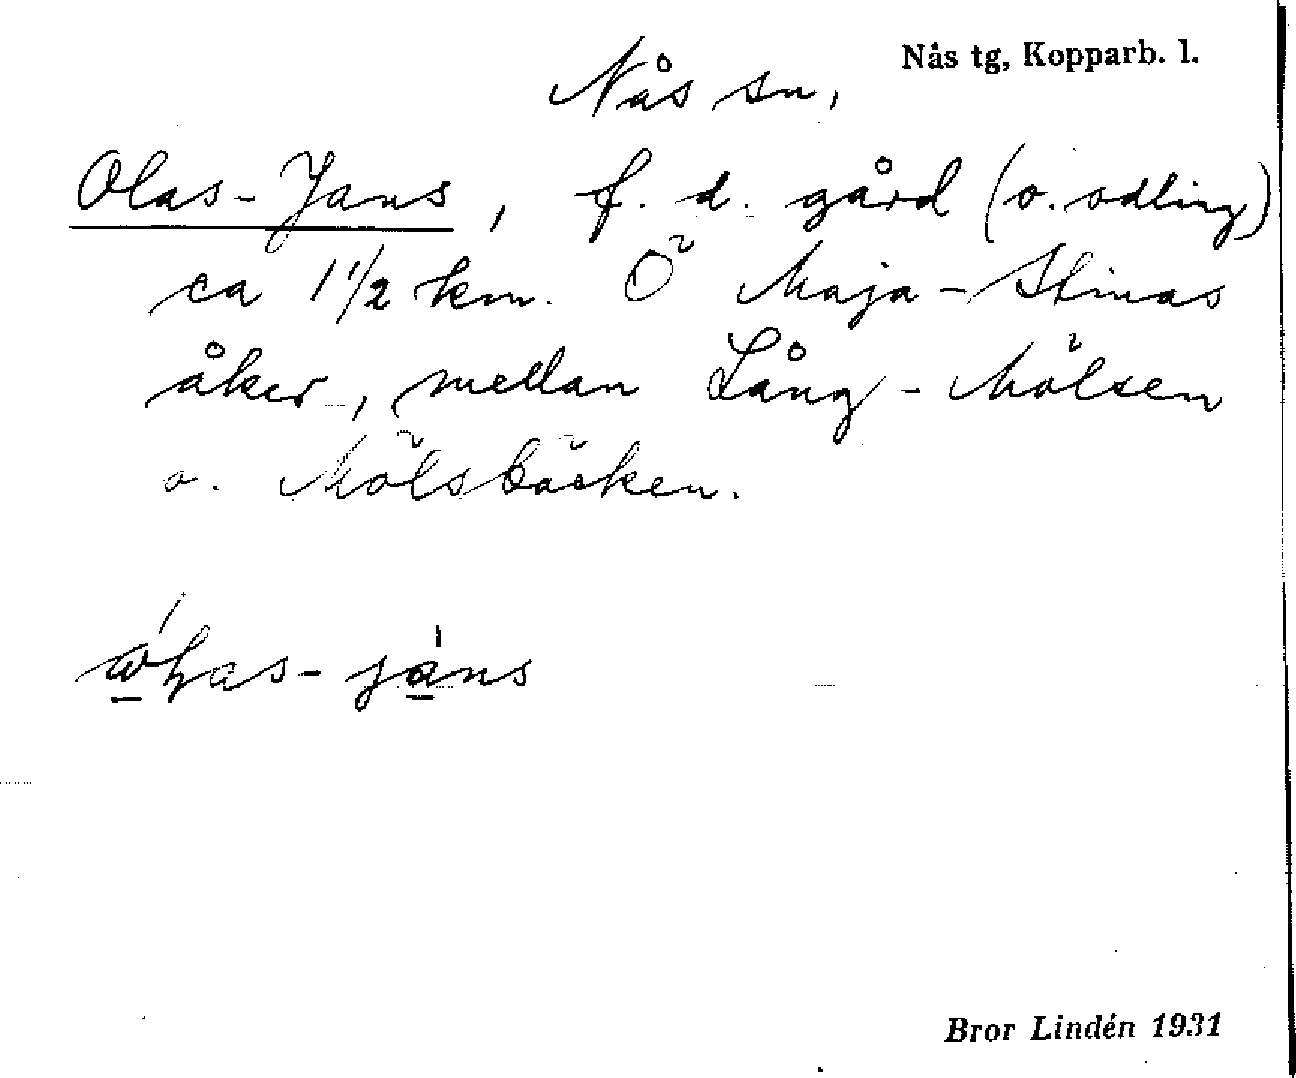 Nås tg, Kopparb. l.
Nås sn,
Olas-Jans, f. d. gård (o. odling)
ca 1 1/2 km. Ö Maja-Stinas
åker, mellan Lång-Mölsen
o. Mölsbäcken.
-jans
Bror Lindén 1931